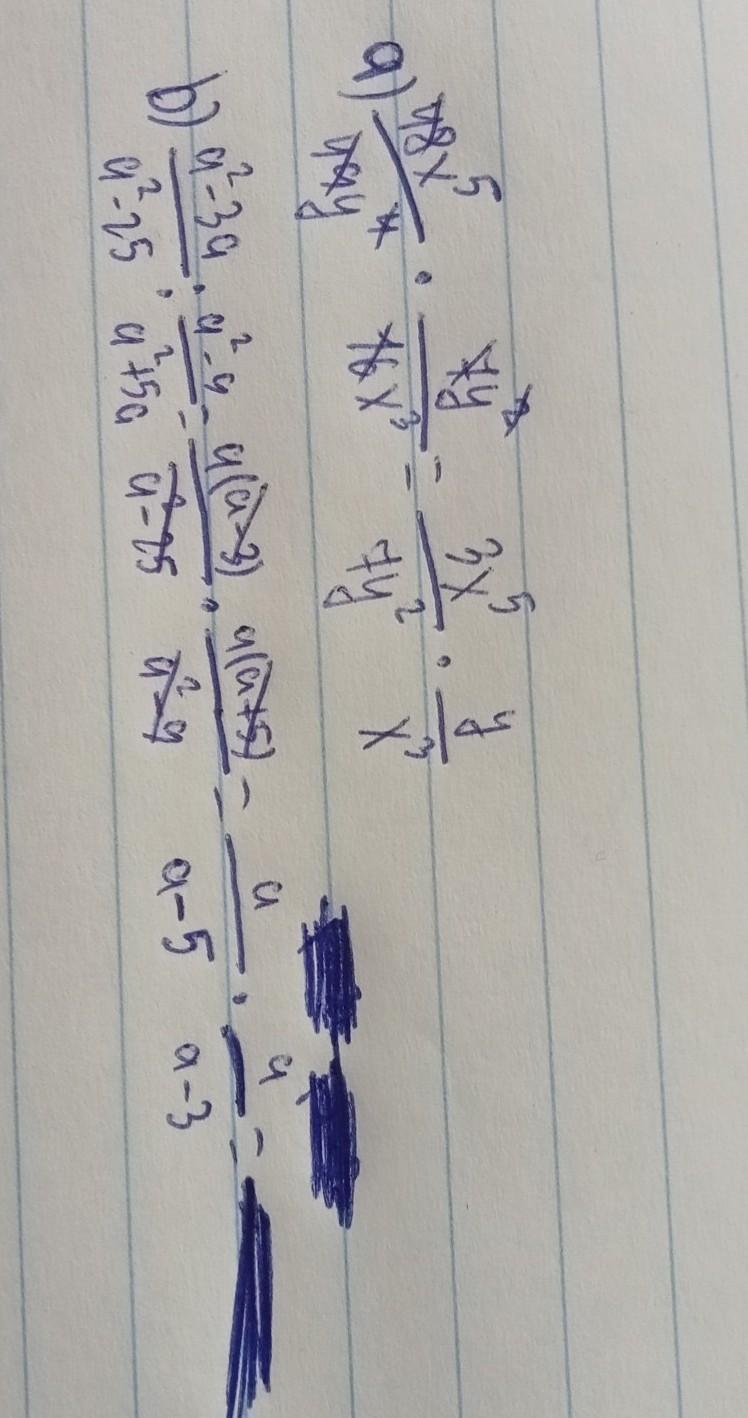 a) 48x⁵/49y⁴ · 7y²/16x³ = 3x⁵/7y² · y/x³
b) a²-3a/a²-25 : a²-9/a²+5a = a(a-3)/a-25 · a(a+5)/a²-9 = a/a-5 · a/a-3 =